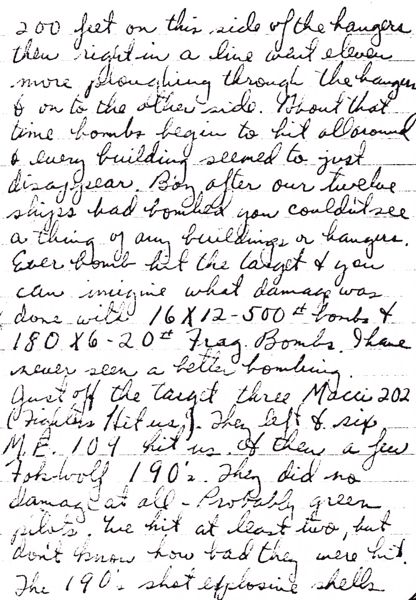 200 feet on this side of the hangers
then right in a line went eleven
more ploughing through the hangers
& on to the other side. About that
time bombs begin to hit all around
& every building seemed to just
disappear. Boy after our twelve
ships had bombed you couldn't see
a thing of any buildings or hangers.
Ever bomb hit the target & you
can imigine what damage was
done with 16 X 12 - 500# bombs &
180 X 6 - 20# Frag. Bombs. I have
never seen a better bombing.
Just off the target three Macci 202
(Fighters Hit us). They left & six
M.E. 109 hit us & then a few
Fok-wolf 190's. They did no
damage at all - Probably green
pilots. We hit at least two, but
don't know how bad they were hit.
The 190's shot explosive shells